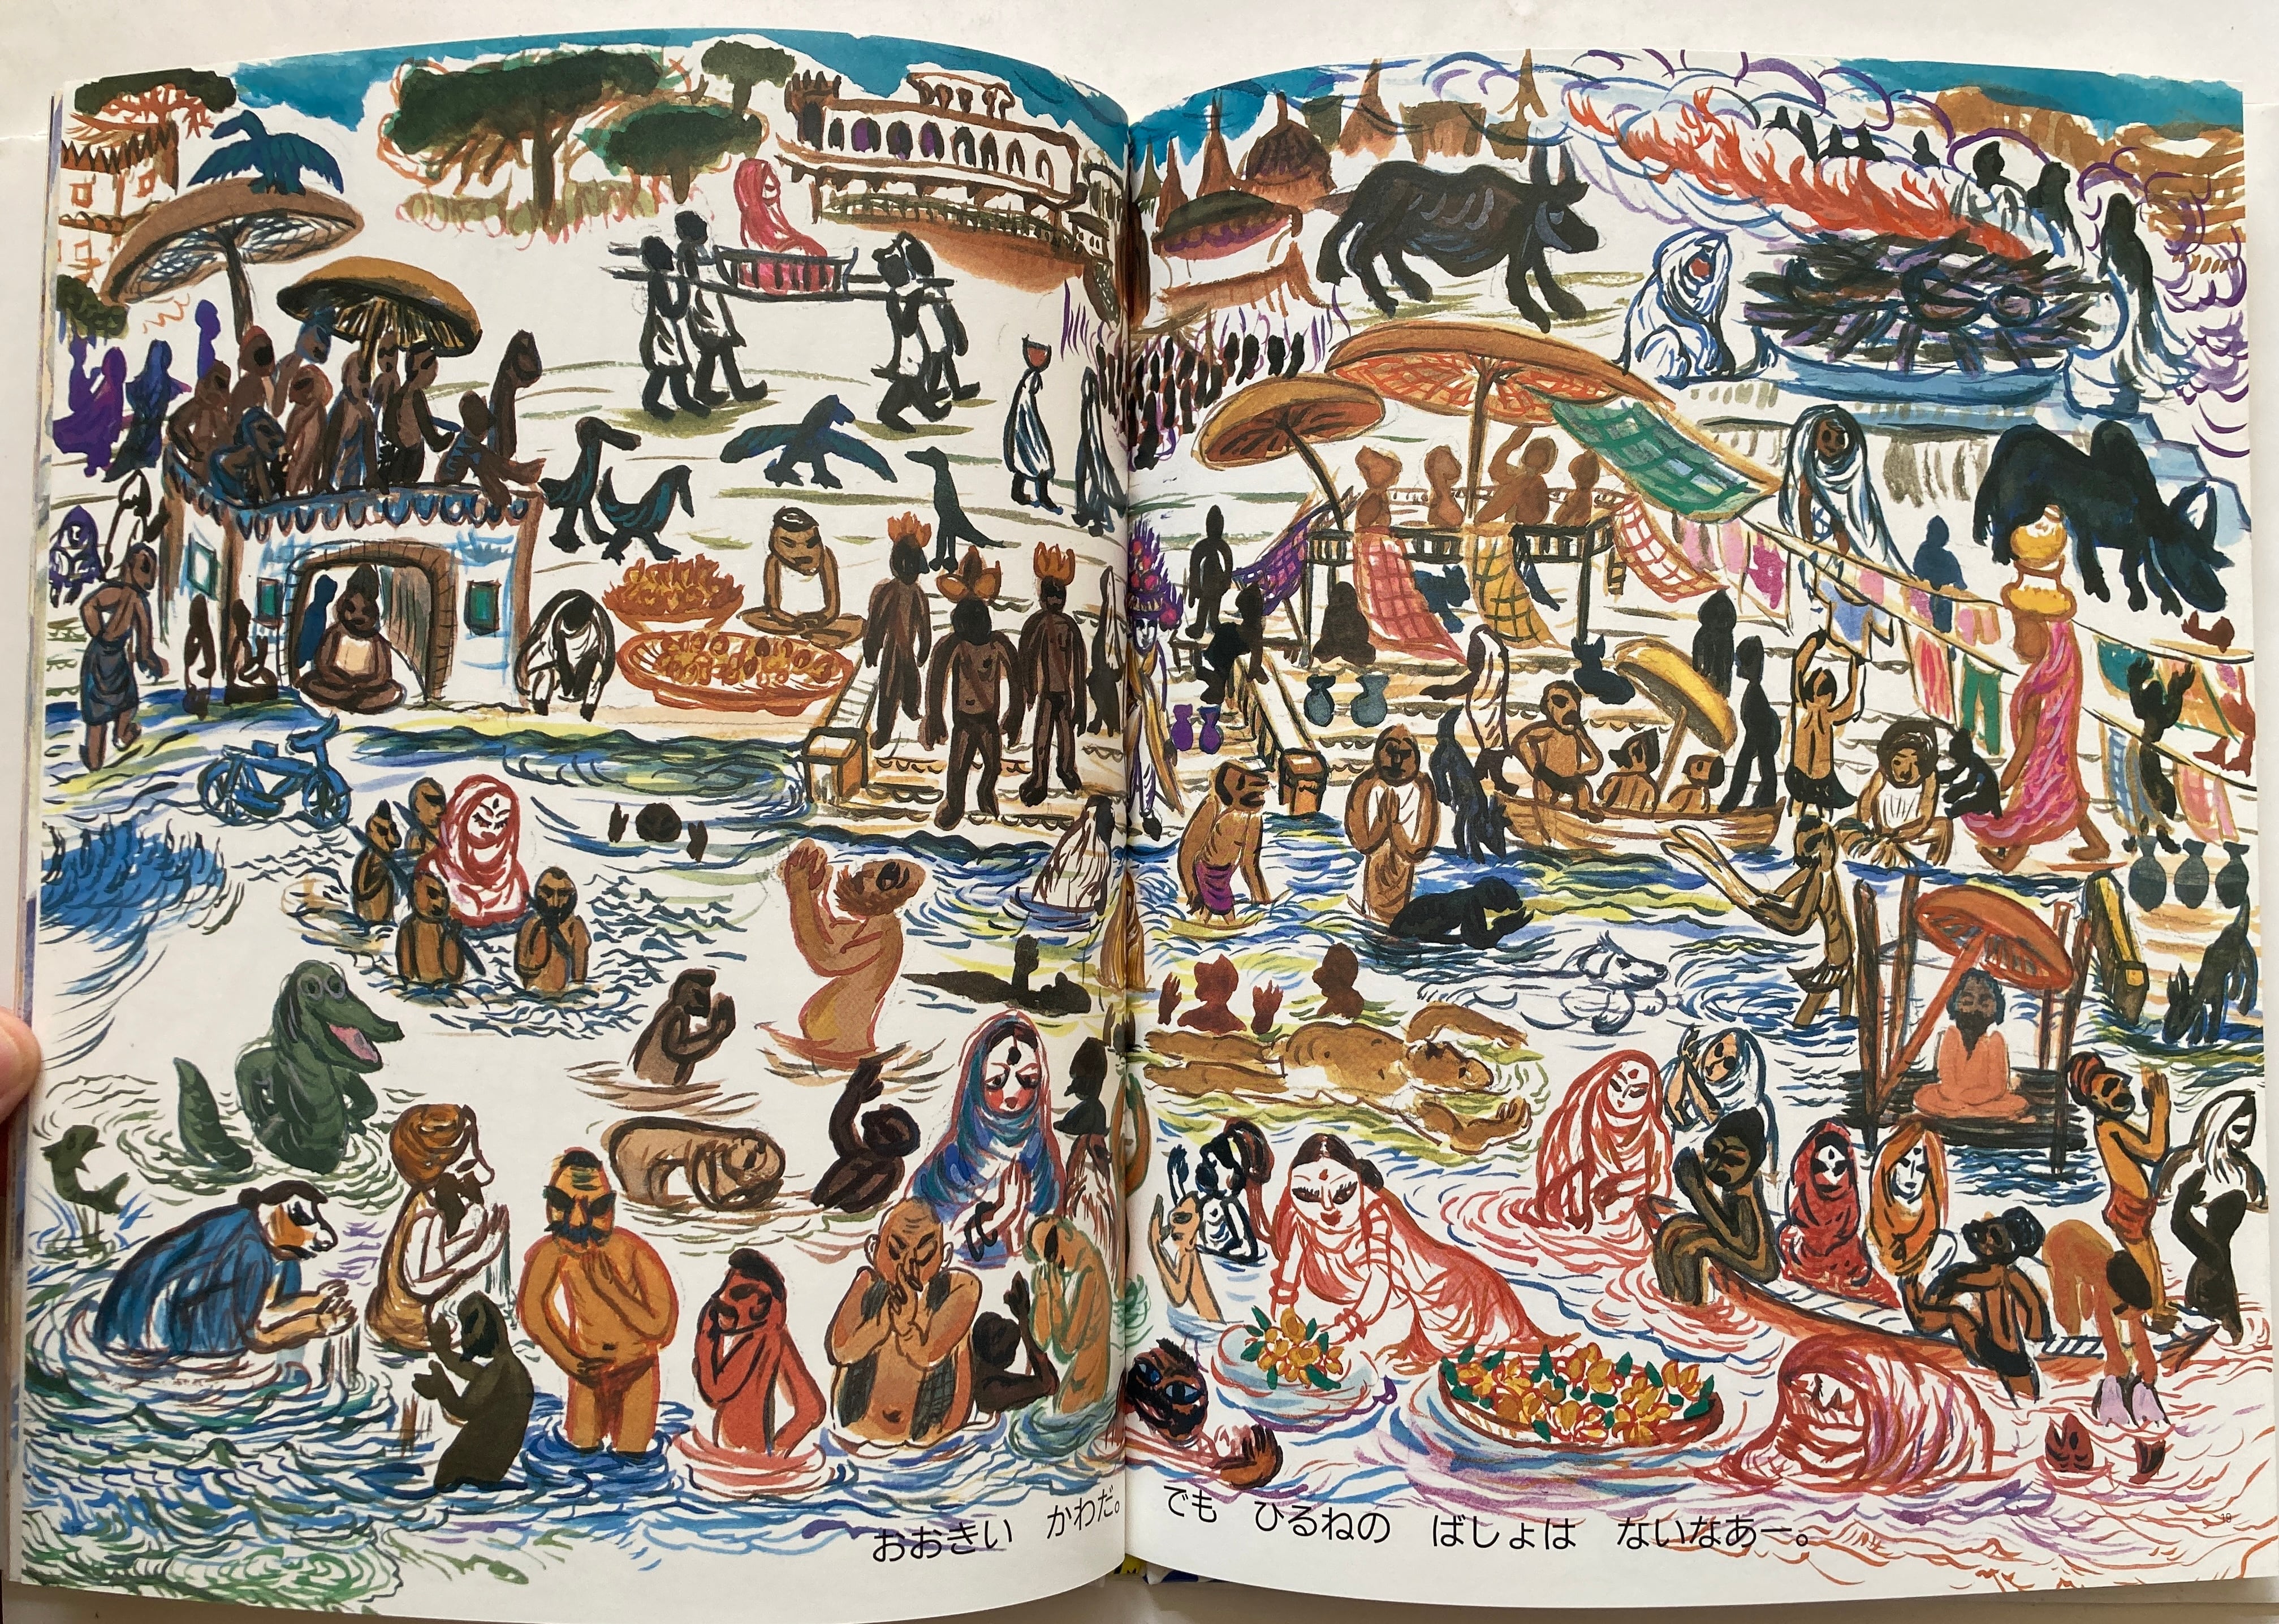 おおきい　かわだ。
でも　ひるねの　ばしょは　ないなあー。
19